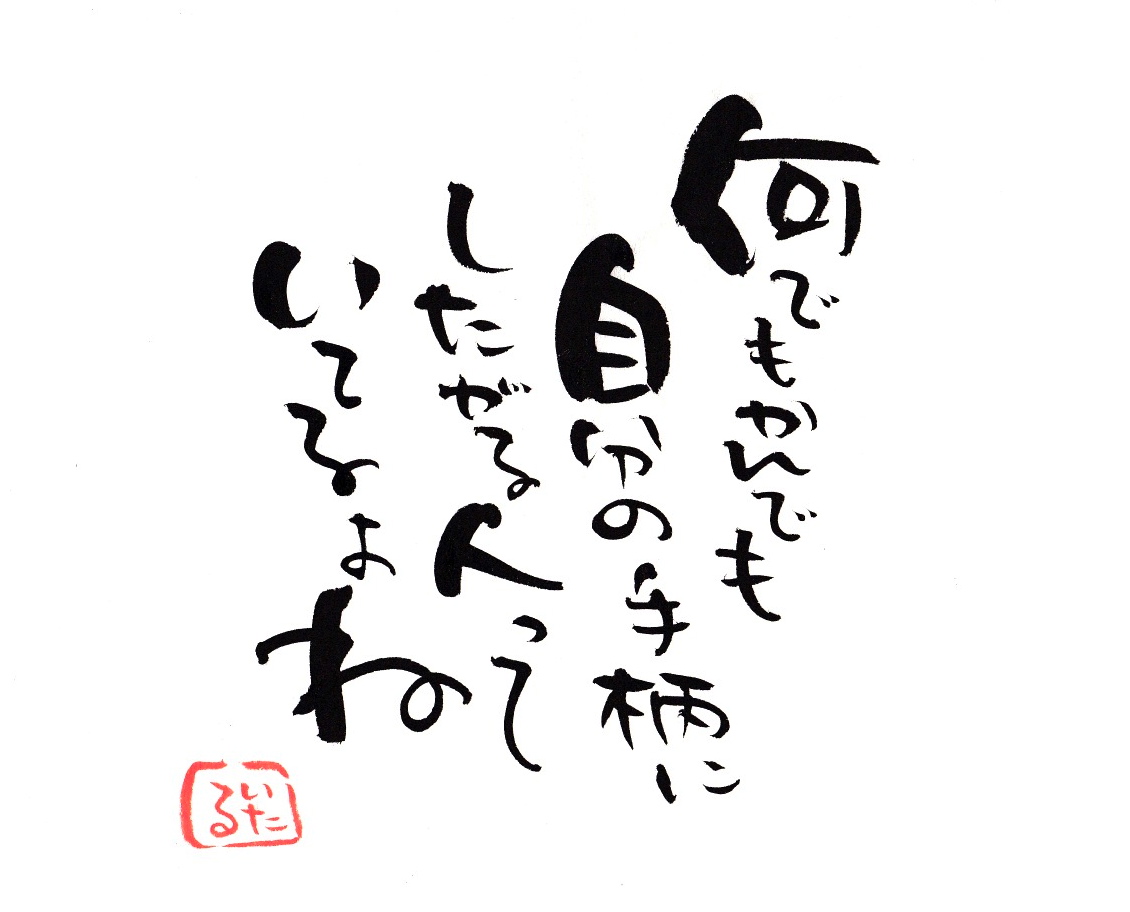 何でもかんでも
自分の手柄に
したがる人って
いてるよね
いた
る